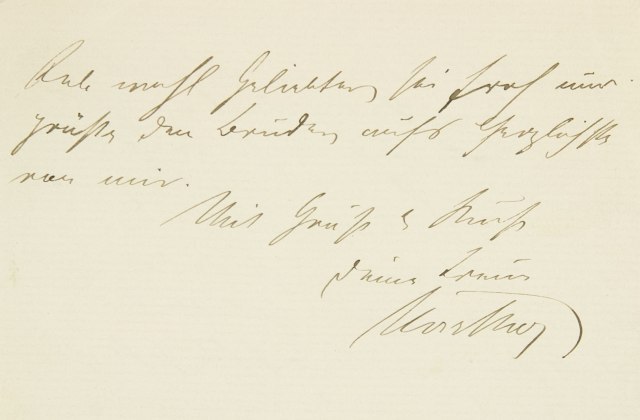 Lebe wohl Geliebter, sei froh und
grüße den Bruder aufs Herzlichste
von mir.
Mit Gruß & Kuß
deine treue